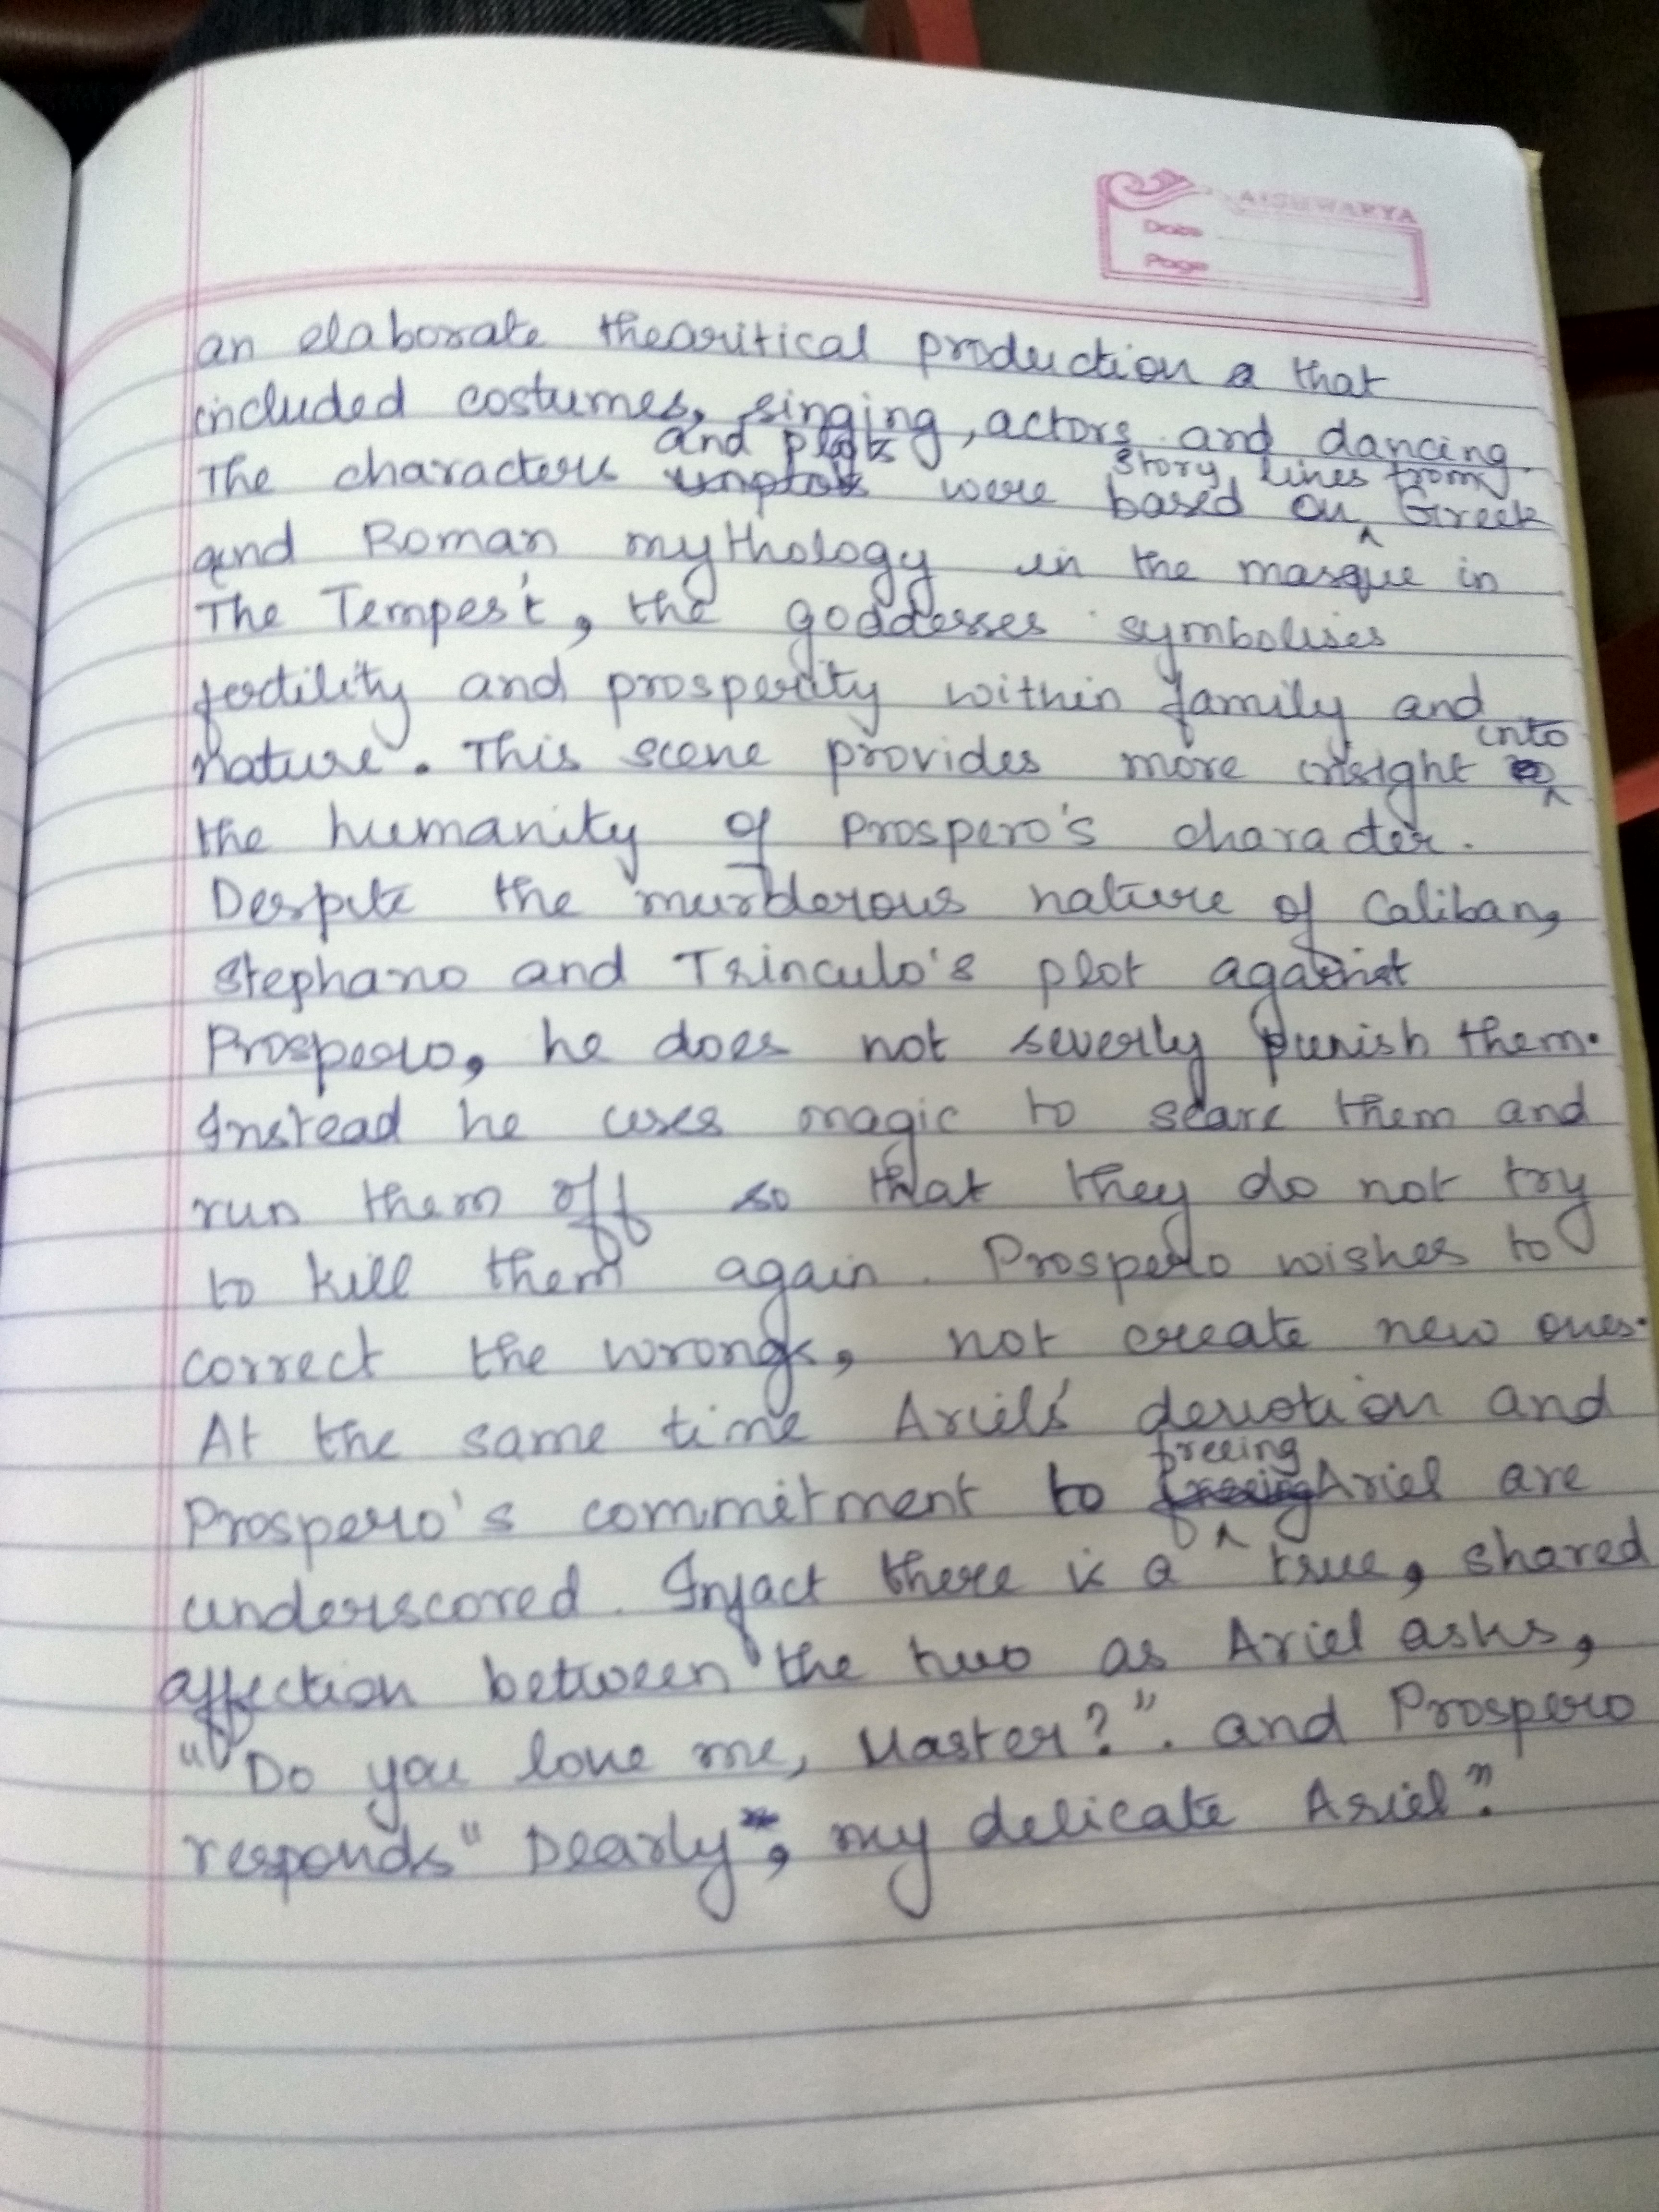 AISHWARYA
Date
Page
an elaborate thearitical production a that
included costumes, singing, actors and dancing.
The characters and plots were based on story lines from Greek
and Roman mythology in the masque in
The Tempest, the goddesses symbolises
fertility and prosperity within family and
nature. This scene provides more insight into
the humanity of Prospero's character.
Despite the murderous nature of Caliban,
Stephano and Trinculo's plot against
Prospero, he does not severly punish them.
Instead he uses magic to scare them and
run them off so that they do not try
to kill them again. Prospero wishes to
correct the wrongs, not create new ones.
At the same time Ariel's devotion and
Prospero's commitment to freeing Ariel are
underscored. Infact there is a true, shared
affection between the two as Ariel asks,
"Do you love me, Master?". and Prospero
responds "Dearly, my delicate Ariel".